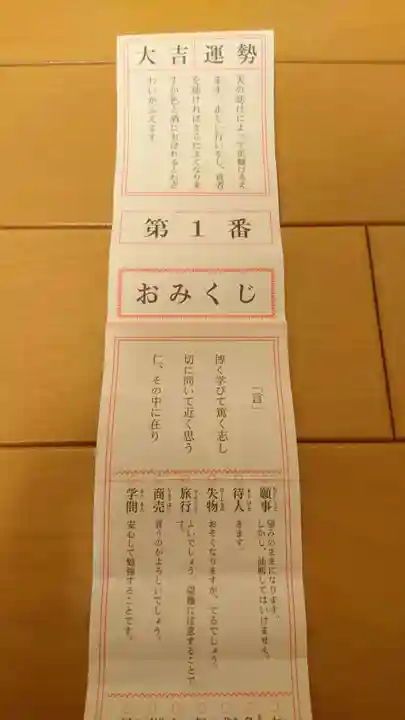 大吉運勢
天の助けによって正願がるえ
ます。正しい行いをし、貧者
を助ければさらによくなりま
すが色と酒におぼれるとわざ
わいがふえます
第1番
おみくじ
「言」
博く学びて篤く志し
切に問いて近く思う
仁、その中に在り
願事 望みのままになります。
しかし、油断してはいけません。
待人 きます。
失物 おそくなりますが、でるでしょう。
旅行 よいでしょう 盗難に注意することで
す。
商売 買うのがよろしいでしょう。
学問 安心して勉強することです。